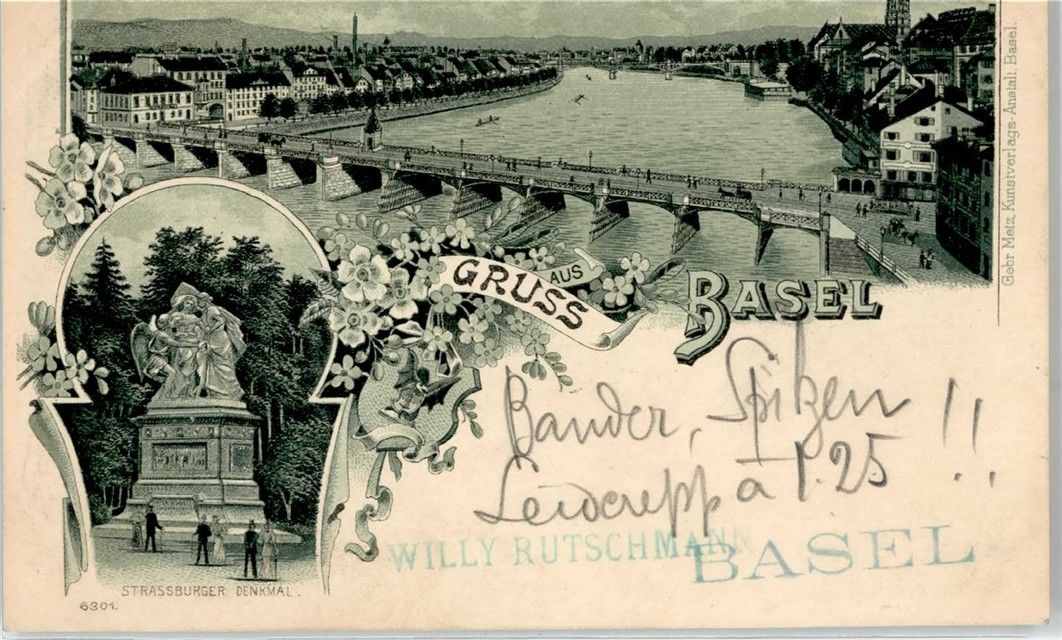 GRUSS AUS BASEL
Bänder, Spitzen !!
Seidcrepp à 1.25
WILLY RUTSCHMANN
BASEL
STRASSBURGER DENKMAL.
6301.
Gebr Metz, Kunstverlags-Anstalt, Basel.